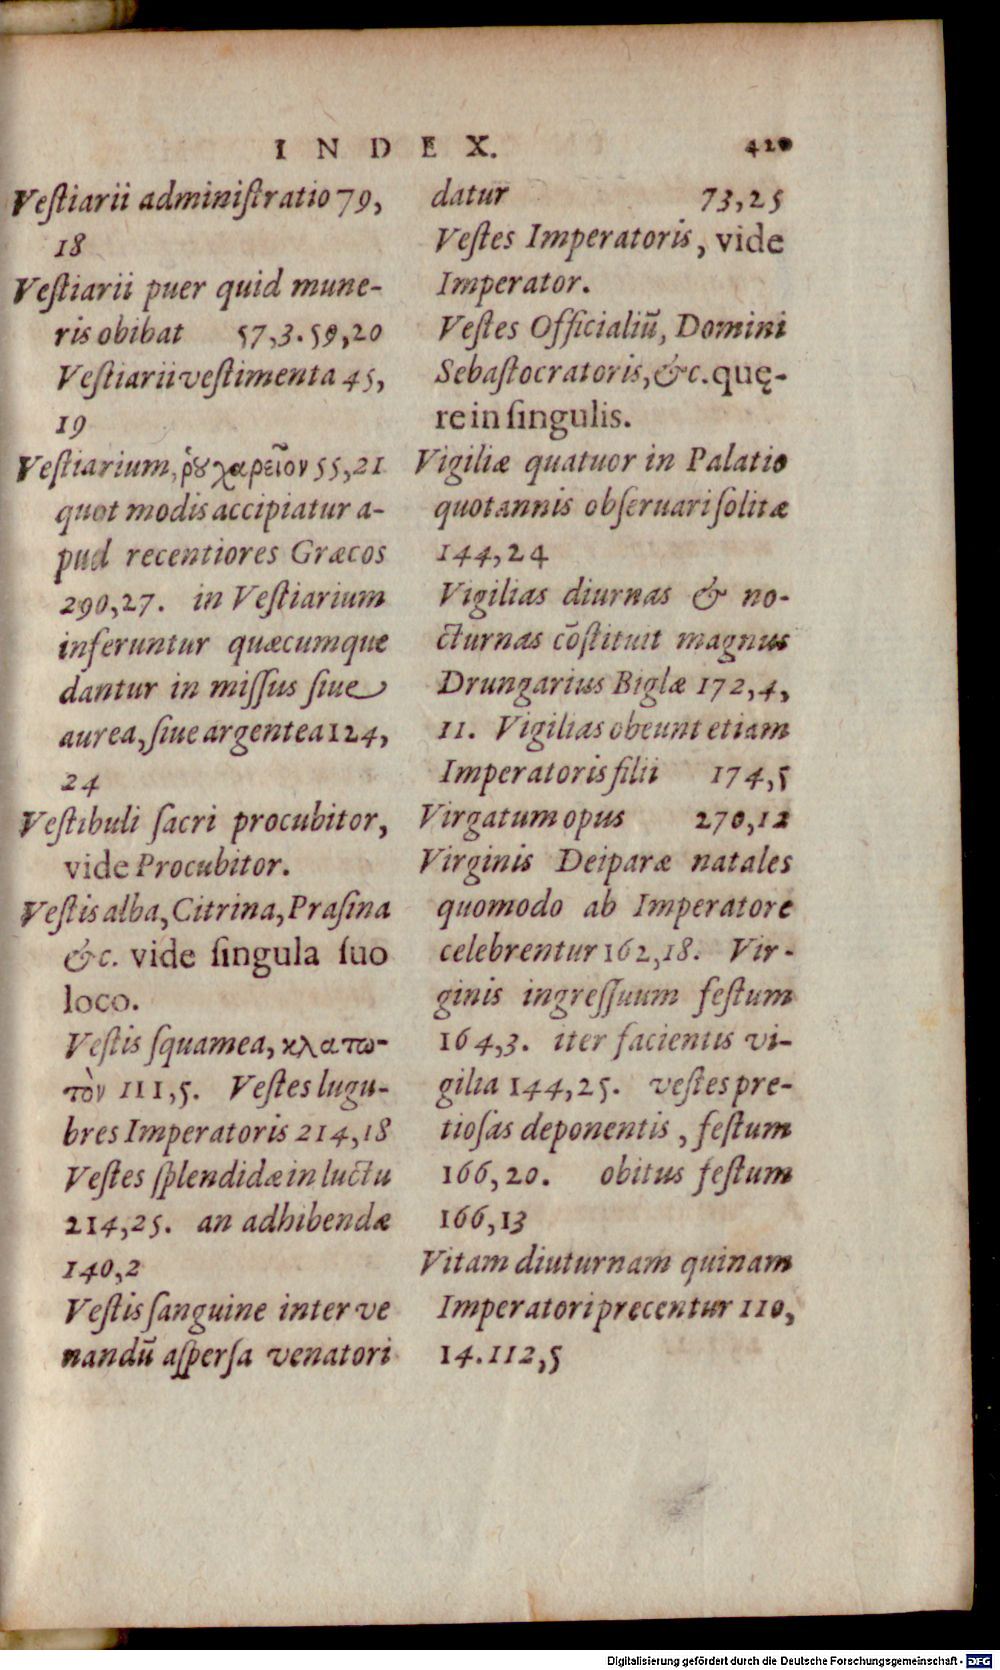 INDEX. 420
Veſtiarii adminiſtratio 79,
18
Veſtiarii puer quid mune-
ris obibat 57,3. 59,20
Veſtiarii veſtimenta 45,
19
Veſtiarium, ῥȣχαρεῖον 55,21
quot modis accipiatur a-
pud recentiores Græcos
290,27. in Veſtiarium
inferuntur quæcumque
dantur in miſſus ſiue
aurea, ſiue argentea 124,
24
Veſtibuli ſacri procubitor,
vide Procubitor.
Veſtis alba, Citrina, Praſina
&c. vide ſingula ſuo
loco.
Veſtis ſquamea, κλαπω-
τὸν 111,5. Veſtes lugu-
bres Imperatoris 214,18
Veſtes ſplendidæ in luctu
214,25. an adhibendæ
140,2
Veſtis ſanguine inter ve
nandū aſperſa venatori
datur 73,25
Veſtes Imperatoris, vide
Imperator.
Veſtes Officialiū, Domini
Sebaſtocratoris, &c. quę-
re in ſingulis.
Vigiliæ quatuor in Palatio
quotannis obſeruari ſolitæ
144,24
Vigilias diurnas & no-
cturnas cōſtituit magnus
Drungarius Biglæ 172,4,
11. Vigilias obeunt etiam
Imperatoris filii 174,5
Virgatum opus 270,12
Virginis Deiparæ natales
quomodo ab Imperatore
celebrentur 162,18. Vir-
ginis ingreſſuum feſtum
164,3. iter facientis vi-
gilia 144,25. veſtes pre-
tioſas deponentis, feſtum
166,20. obitus feſtum
166,13
Vitam diuturnam quinam
Imperatori precentur 110,
14. 112,5
Digitalisierung gefördert durch die Deutsche Forschungsgemeinschaft - DFG